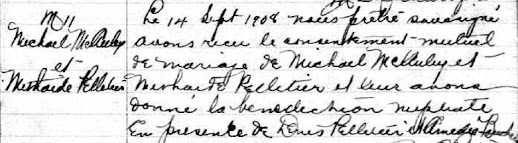 M 11
Michael McAuley
et
Mishaide Pelletier
Le 14 Sept 1908 nous prêtre soussigné
avons recu le consentement mutuel
de mariage de Michael McAuley et
Mishaide Pelletier et leur avons
donné la bénédiction nuptiale
En presence de Denis Pelletier et